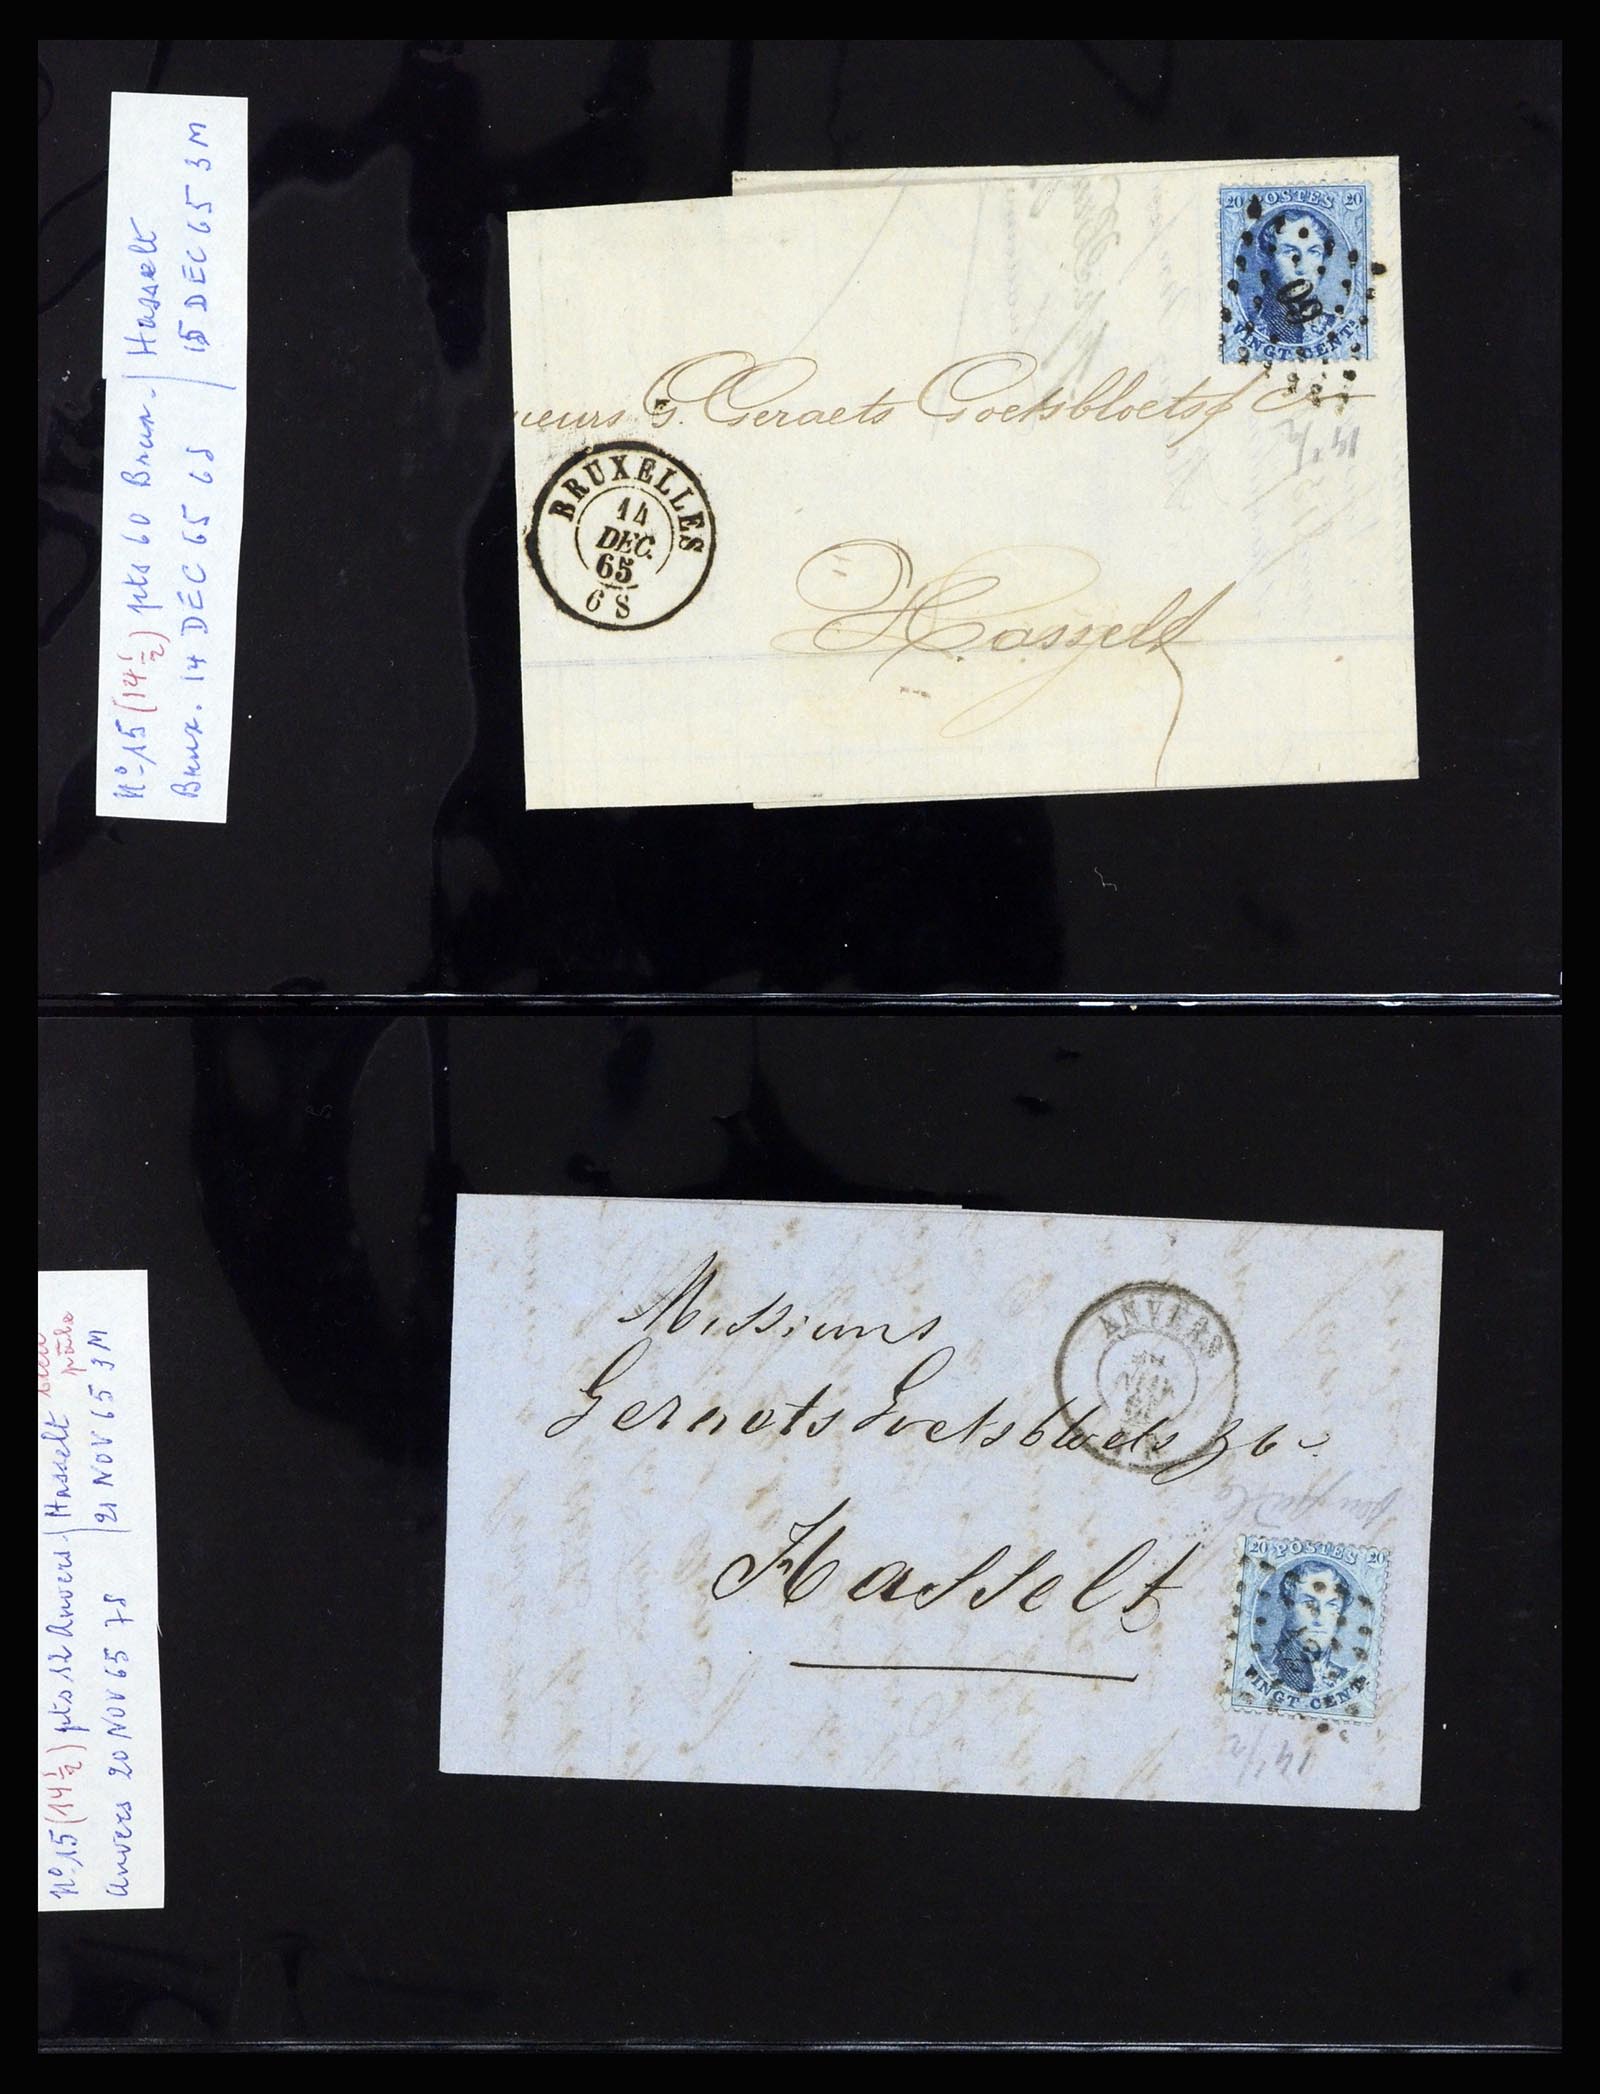 N° 15 (14 1/2) pts 60 Brux. / Hasselt
Brux. 14 DEC 65 6S / 15 DEC 65 3M
20 POSTES 20
60
VINGT CENTS
ieurs G. Geraets Goetsbloets &
14 1/2
BRUXELLES
14
DEC.
65
6 S
Hasselt
N° 15 (14 1/2) pts 12 Anvers / Hasselt bleu pâle
Anvers 20 NOV 65 7S / 21 NOV 65 3M
Messieurs
ANVERS
Geraets Goetsbloets &
Hasselt
20 POSTES 20
VINGT CENTS
14 1/2